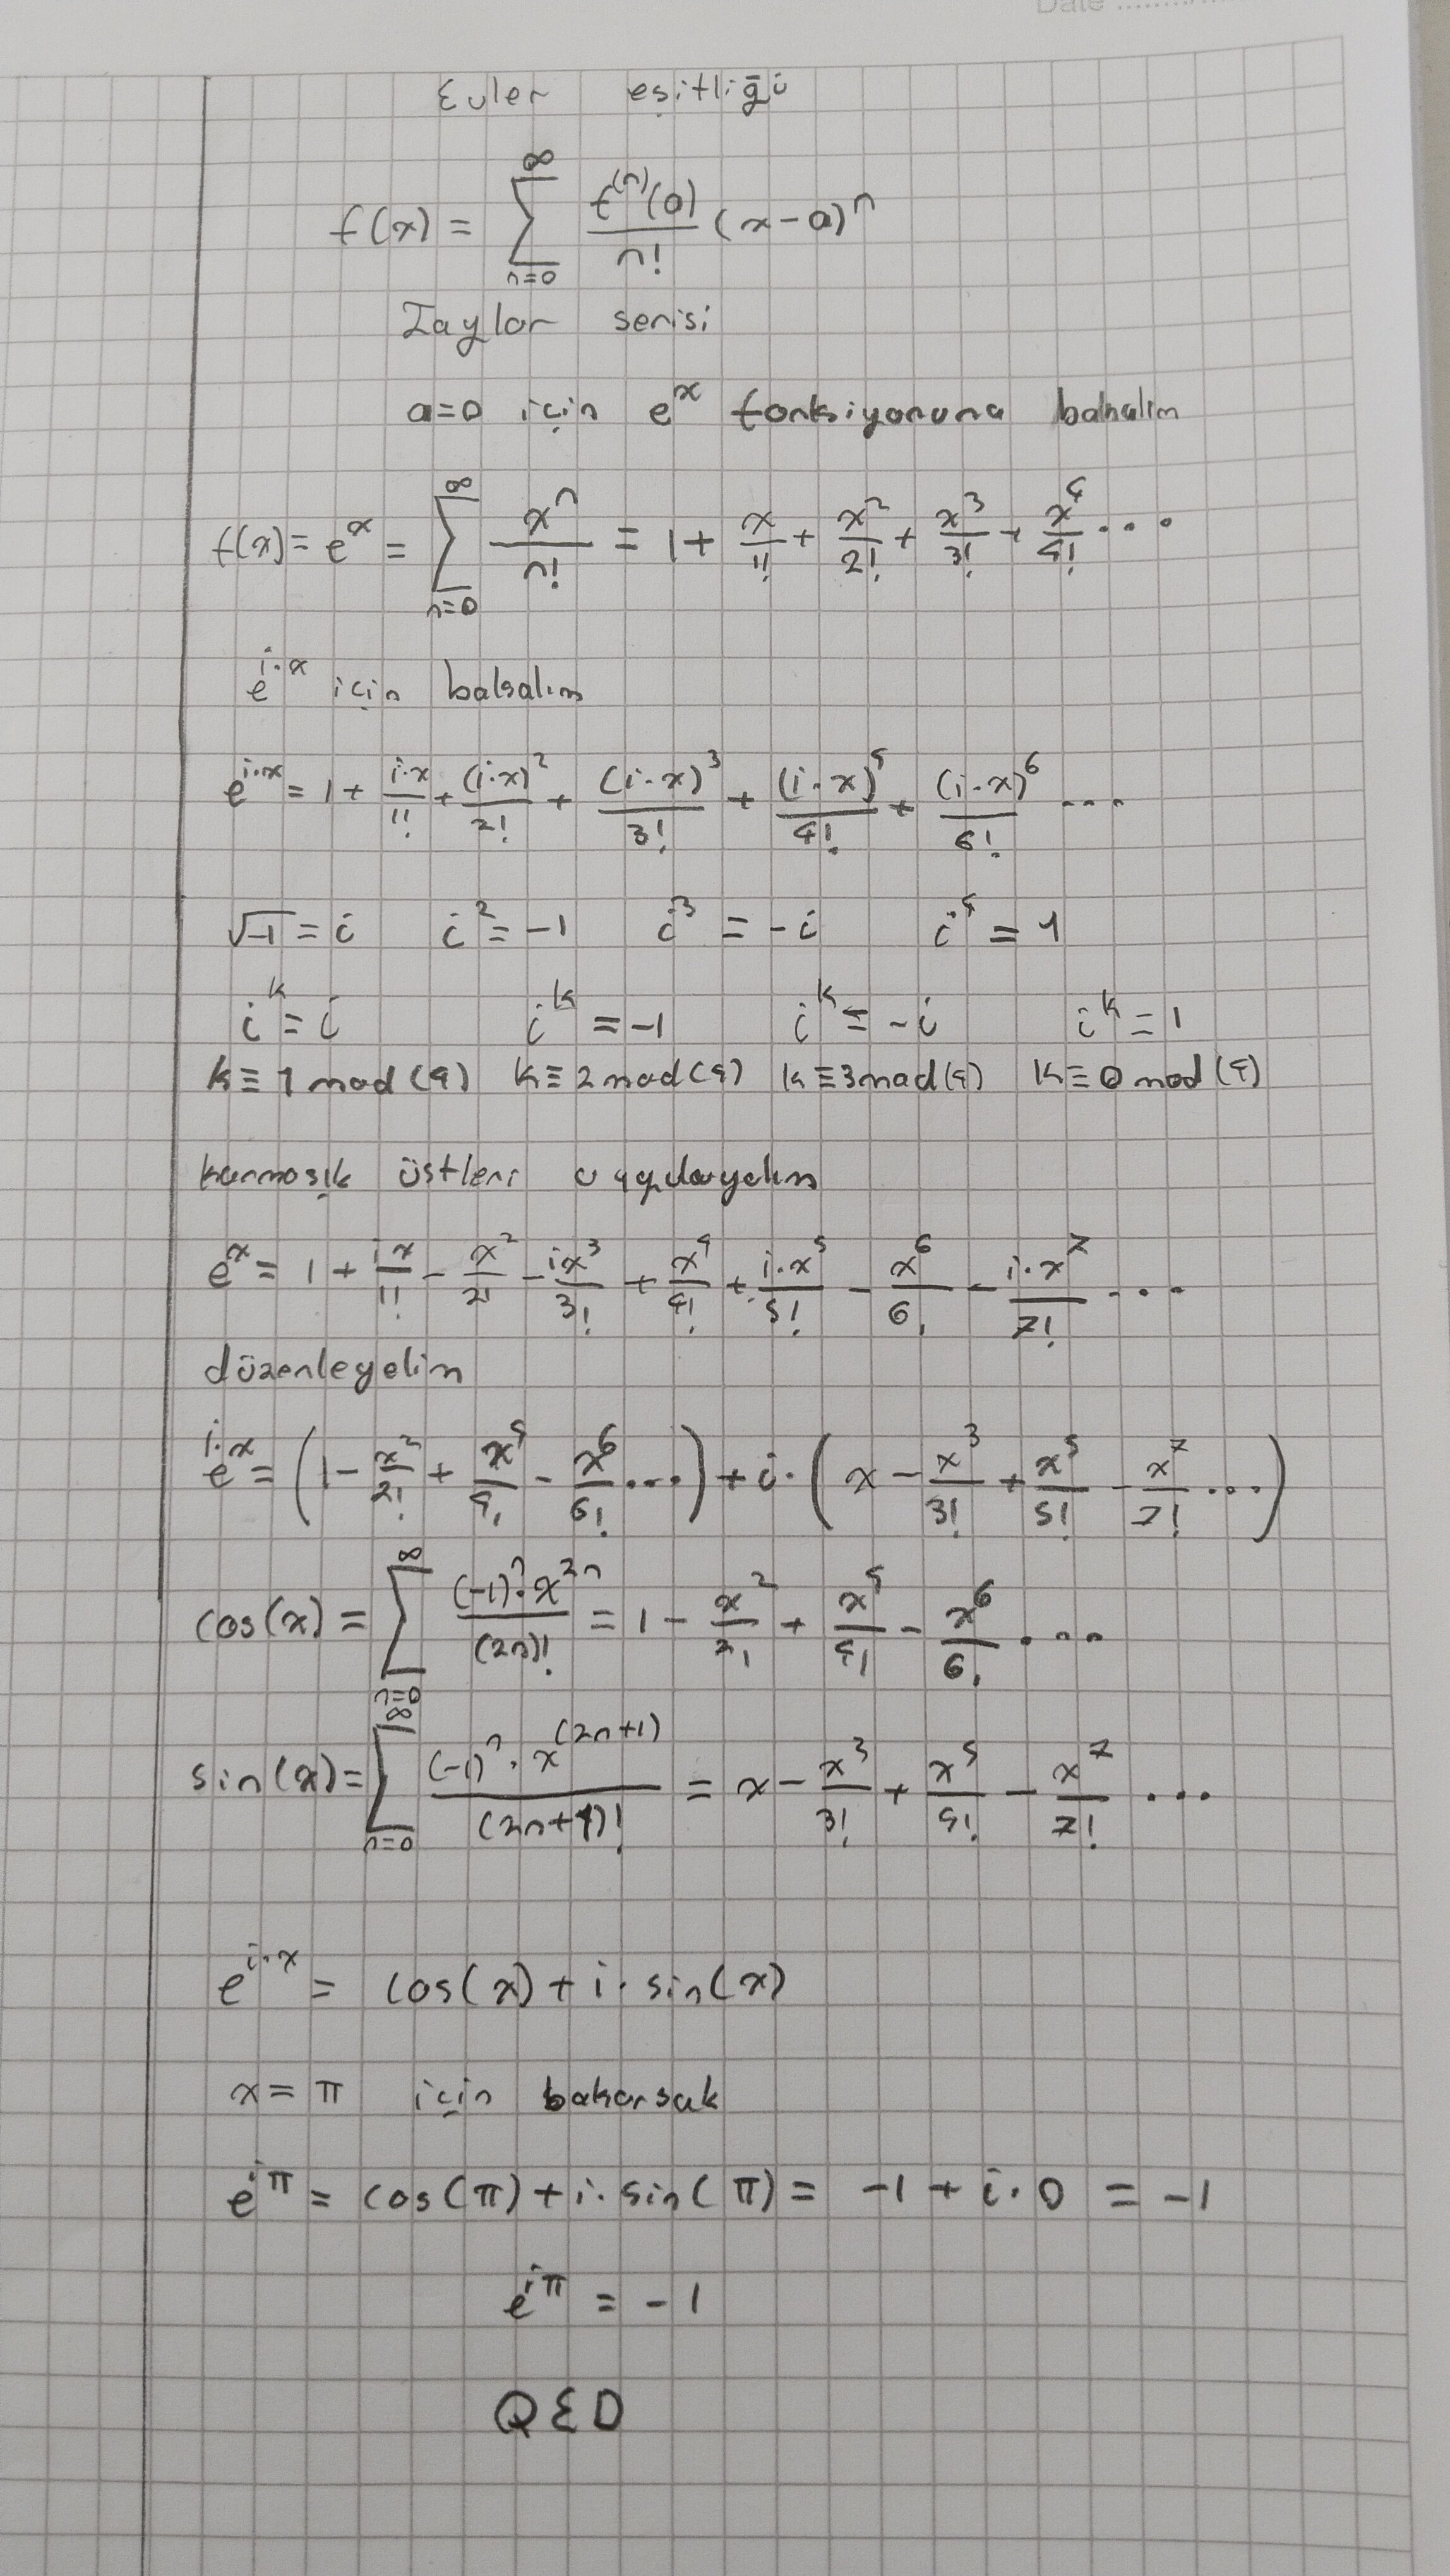 Date ...........
Euler eşitliği
f(x) = ∑_{n=0}^{∞} f^{(n)}(a)/n! (x-a)^n
Taylor serisi
a=0 için e^x fonksiyonuna bakalım
f(x) = e^x = ∑_{n=0}^{∞} x^n/n! = 1 + x/1! + x^2/2! + x^3/3! + x^4/4! ...
e^{i·x} için bakalım
e^{i·x} = 1 + i·x/1! + (i·x)^2/2! + (i·x)^3/3! + (i·x)^4/4! + (i·x)^6/6! ...
√-1 = i i^2 = -1 i^3 = -i i^4 = 1
i^k = i i^k = -1 i^k = -i i^k = 1
k≡1 mod(4) k≡2 mod(4) k≡3 mod(4) k≡0 mod(4)
karmaşık üstleri uygulayalım
e^x = 1 + ix/1! - x^2/2! - ix^3/3! + x^4/4! + i·x^5/5! - x^6/6! - i·x^7/7! ...
düzenleyelim
e^{i·x} = (1 - x^2/2! + x^4/4! - x^6/6! ...) + i·(x - x^3/3! + x^5/5! - x^7/7! ...)
cos(x) = ∑_{n=0}^{∞} (-1)^n·x^{2n}/(2n)! = 1 - x^2/2! + x^4/4! - x^6/6! ...
sin(x) = ∑_{n=0}^{∞} (-1)^n·x^{(2n+1)}/(2n+1)! = x - x^3/3! + x^5/5! - x^7/7! ...
e^{i·x} = cos(x) + i·sin(x)
x = π için bakarsak
e^{iπ} = cos(π) + i·sin(π) = -1 + i·0 = -1
e^{iπ} = -1
QED